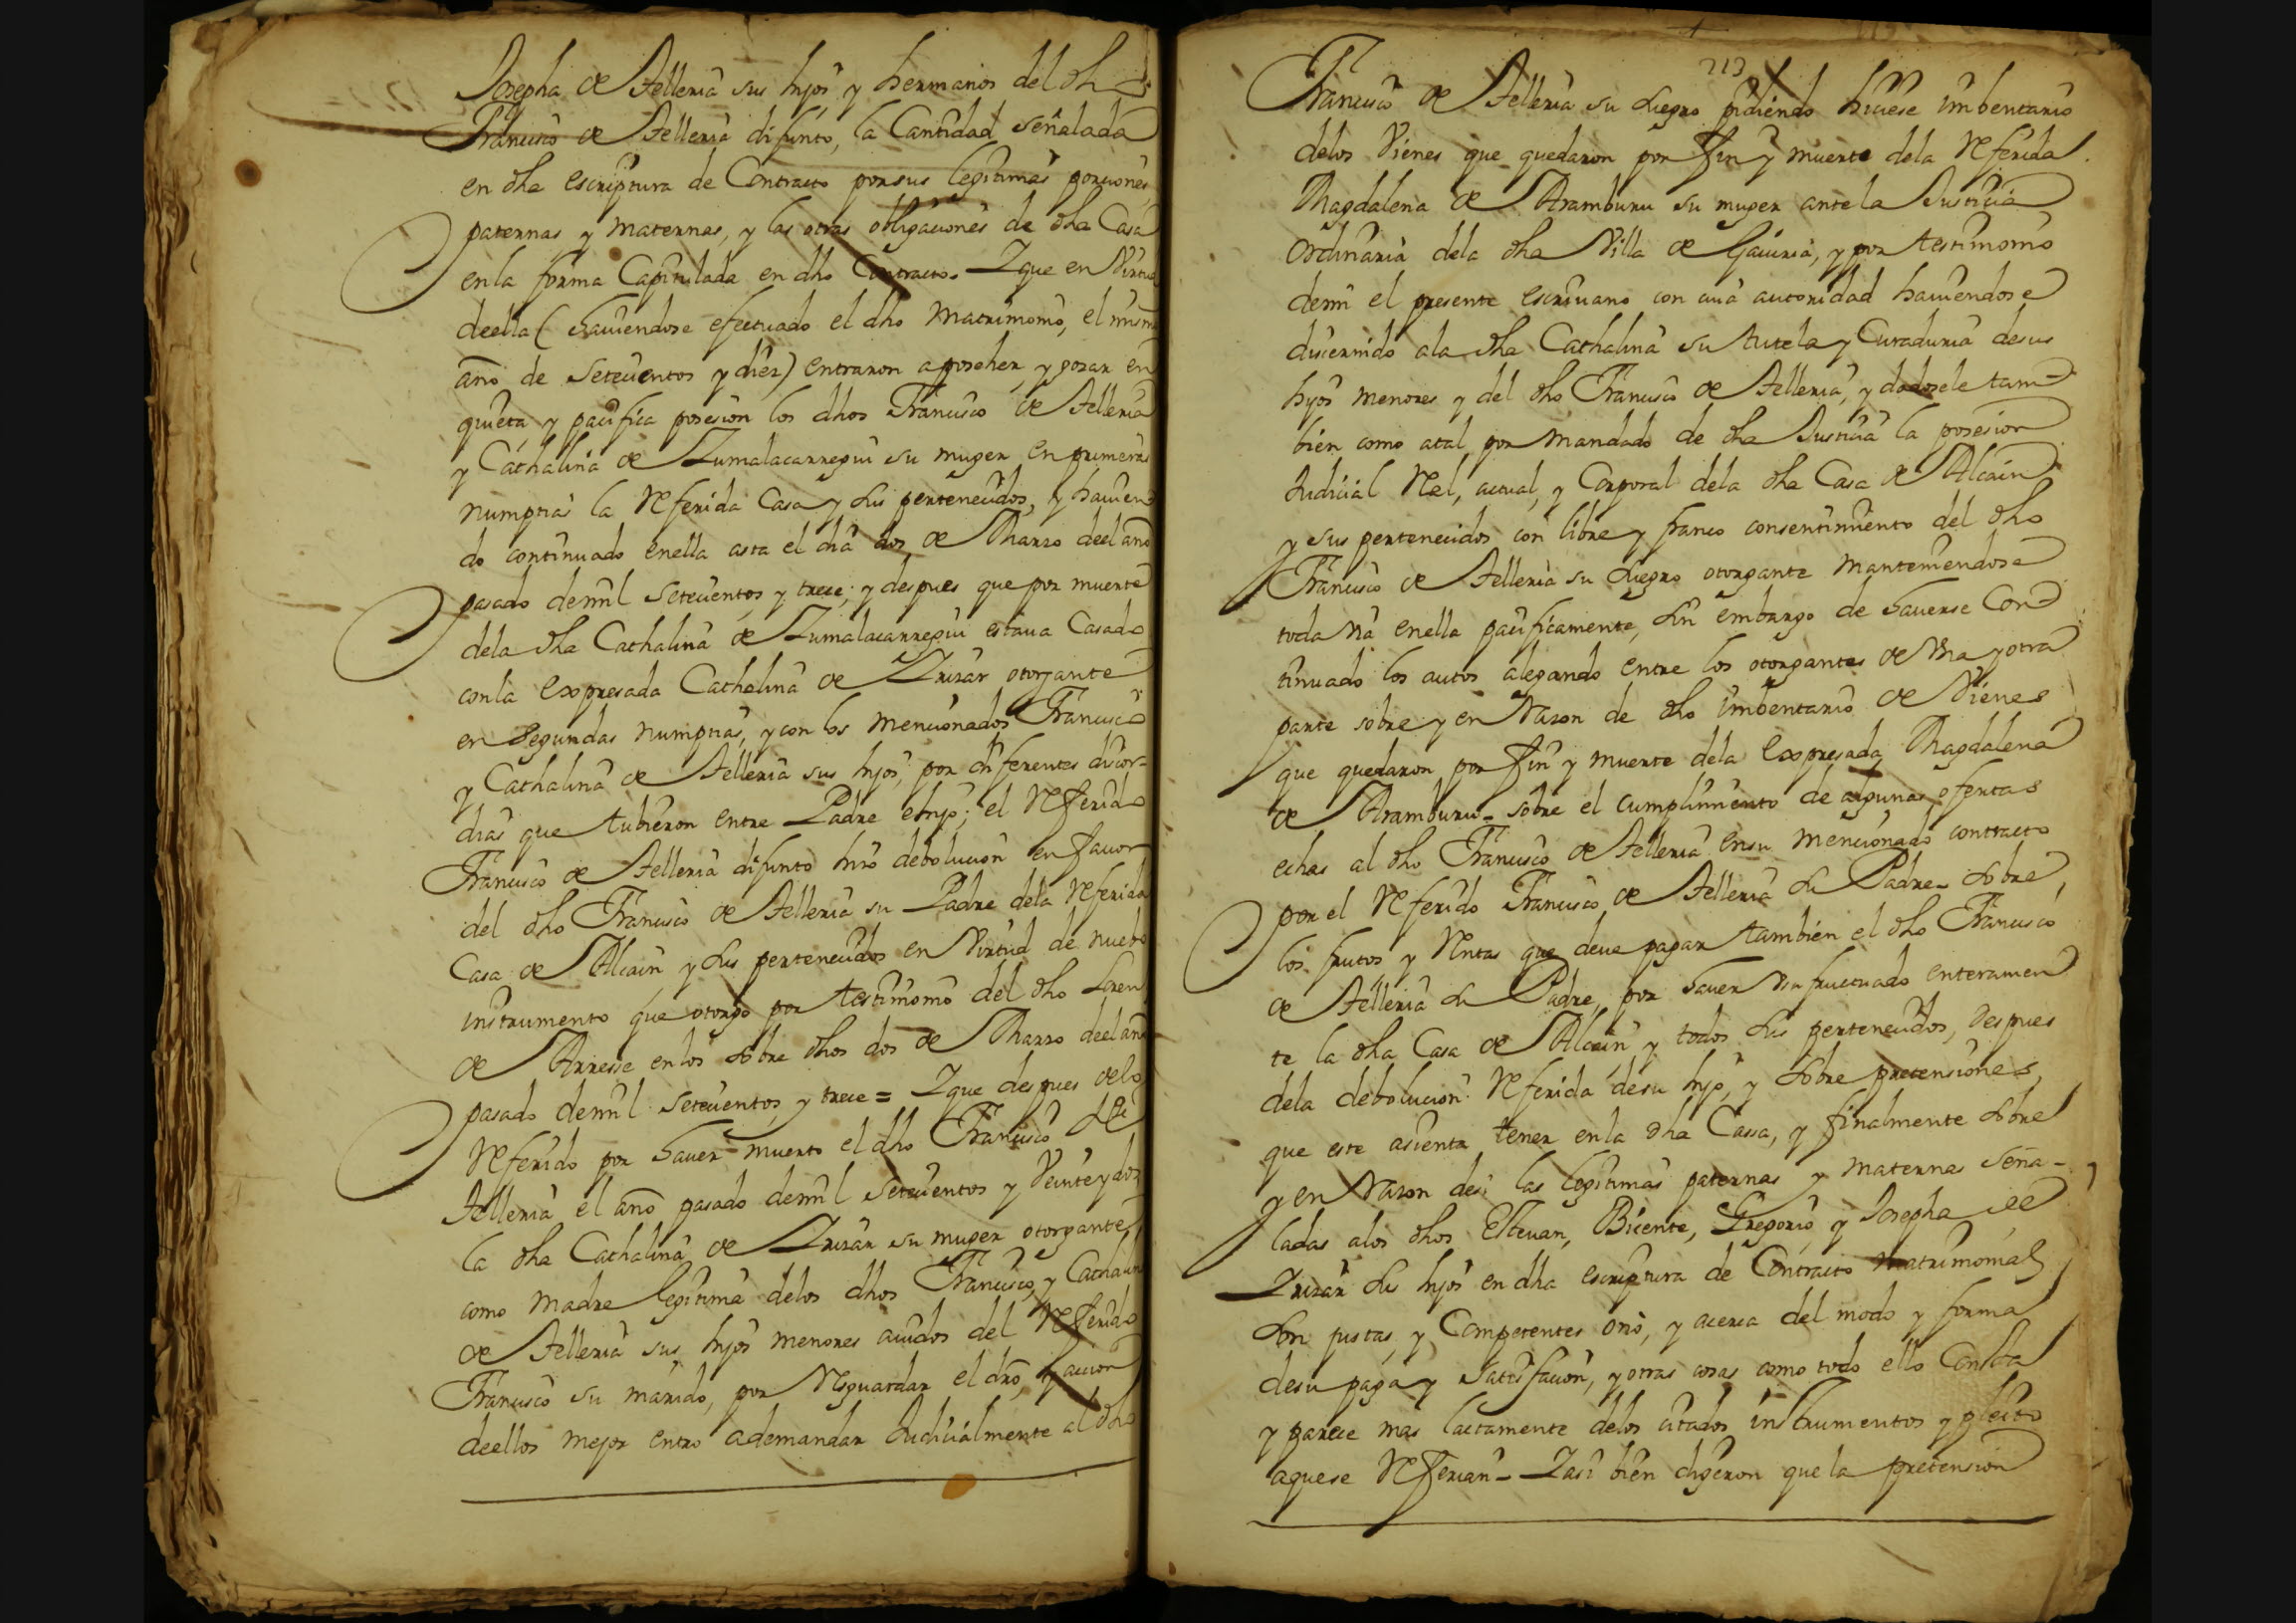 Josepha de Telleria sus hijos y hermanos del dho
Francisco de Telleria difunto, la Cantidad señalada
en dha escriptura de Contracto por sus legitimas porciones
paternas y maternas, y las otras obligaciones de dha Casa
en la forma Capitulada en dho Contracto. Y que en Virtud
de ella (haviendose efectuado el dho Matrimonio, el mismo
año de Setecientos y diez) entraron a poseher, y gozar en
quieta, y pacifica posesion los dhos Francisco de Telleria
y Cathalina de Zumalacarregui su muger en primeras
numptias la Referida Casa y sus pertenecidos, y havien
do continuado en ella asta el dia dos de Marzo de el año
pasado de mil Setecientos y trece; y despues que por muerte
de la dha Cathalina de Zumalacarregui estava Casado
con la expresada Cathalina de Yrizar otorgante
en Segundas numptias, y con los mencionados Francisco
y Cathalina de Telleria sus hijos, por diferentes discor-
dias que tubieron entre Padre e hijo; el Referido
Francisco de Telleria difunto hizo debolucion en favor
del dho Francisco de Telleria su Padre de la Referida
Casa de Alcain y sus pertenecidos en Virtud de nuebo
instrumento que otorgo por testimonio del dho Loren
de Arresse en los sobre dhos dos de Marzo de el año
pasado de mil Setecientos y trece = Y que despues de lo
Referido por haver muerto el dho Francisco de
Telleria el año pasado de mil Setecientos y Veinte y dos
la dha Cathalina de Yrizar su muger otorgante
como madre legitima de los dhos Francisco, y Cathalin
de Telleria sus hijos menores avidos del Referido
Francisco su marido, por Resguardar el dro, y accion
de ellos mejor entro a demandar Judicialmente al dho
213
Francisco de Telleria su suegro pidiendo hiciese imbentario
de los Vienes que quedaron por fin y muerte de la Referida
Magdalena de Aramburu su muger ante la Justicia
ordinaria de la dha Villa de Gaviria, y por testimonio
de mi el presente escrivano con cuia autoridad haviendose
discernido a la dha Cathalina su tutela y Curaduria de sus
hijos menores y del dho Francisco de Telleria, y dadosele tam
bien como atal por mandado de dha Justicia la posesion
Judicial Real, actual, y Corporal de la dha Casa de Alcain
y sus pertenecidos con libre y franco consentimiento del dho
Francisco de Telleria su suegro otorgante manteniendose
toda via en ella pacificamente, sin embargo de haverse con
tinuado los autos alegando entre los otorgantes de Una y otra
parte sobre y en Razon de dho imbentario de Vienes
que quedaron por fin y muerte de la expresada Magdalena
de Aramburu - sobre el cumplimiento de algunas ofertas
echas al dho Francisco de Telleria en su mencionado contracto
por el Referido Francisco de Telleria su Padre - sobre
los frutos y Rentas que deve pagar tambien el dho Francisco
de Telleria su Padre, por haver usufructuado enteramen
te la dha Casa de Alcain y todos sus pertenecidos, despues
de la debolucion Referida de su hijo, y sobre pretensiones
que este asienta tener en la dha Cassa, y finalmente sobre
y en Razon de si las legitimas paternas y maternas seña-
ladas alos dhos Estevan, Bicente, Gregorio y Josepha de
Yrizar sus hijos en dha escriptura de Contracto matrimonial
son justas, y Competentes ono, y acerca del modo y forma
de su paga y satisfacion, y otras cosas como todo ello Consta
y parece mas lactamente de los citados instrumentos y pleito
aquese Refieren - Y asi bien digeron que la pretension